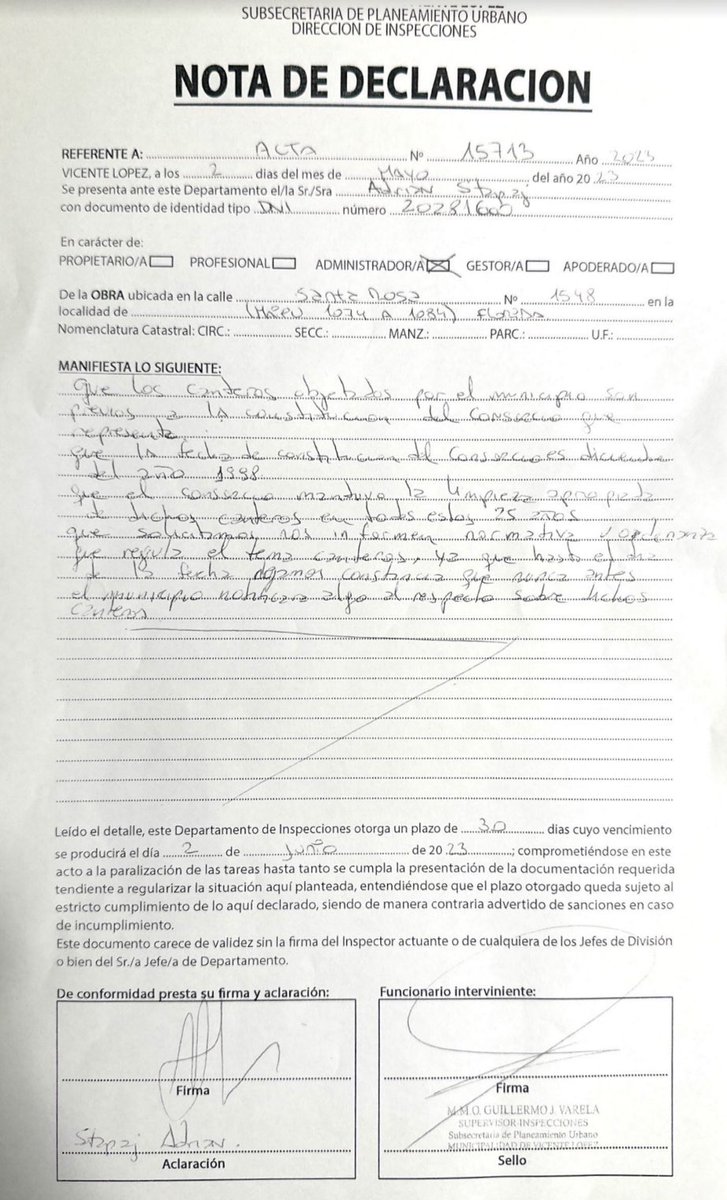 SUBSECRETARIA DE PLANEAMIENTO URBANO
DIRECCION DE INSPECCIONES
NOTA DE DECLARACION
REFERENTE A: ACTA Nº 15713 Año 2023
VICENTE LOPEZ, a los 2 días del mes de Mayo del año 2023
Se presenta ante este Departamento el/la Sr./Sra Adrian Stapaj
con documento de identidad tipo DNI número 20281600
En carácter de:
PROPIETARIO/A PROFESIONAL ADMINISTRADOR/A GESTOR/A APODERADO/A
De la OBRA ubicada en la calle Santa Rosa Nº 1548 en la
localidad de (HAEDO 1074 A 1084) FLORIDA
Nomenclatura Catastral: CIRC.: SECC.: MANZ.: PARC.: U.F.:
MANIFIESTA LO SIGUIENTE:
que los canteros objetados por el municipio son
previos a la constitucion del Consorcio que
represento
que la fecha de constitucion del Consorcio es diciembre
del año 1998
que el consorcio mantuvo la limpieza apropiada
de dichos canteros en todos estos 25 años
que solicitamos nos informen normativa y ordenanza
que regula el tema canteros, ya que hasta el dia
de la fecha constancia que nunca antes
el municipio notificara algo al respecto sobre dichos
canteros
Leído el detalle, este Departamento de Inspecciones otorga un plazo de 30 días cuyo vencimiento
se producirá el día 2 de Junio de 2023; comprometiéndose en este
acto a la paralización de las tareas hasta tanto se cumpla la presentación de la documentación requerida
tendiente a regularizar la situación aquí planteada, entendiéndose que el plazo otorgado queda sujeto al
estricto cumplimiento de lo aquí declarado, siendo de manera contraria advertido de sanciones en caso
de incumplimiento.
Este documento carece de validez sin la firma del Inspector actuante o de cualquiera de los Jefes de División
o bien del Sr./a Jefe/a de Departamento.
De conformidad presta su firma y aclaración:
Firma
Stapaj Adrian.
Aclaración
Funcionario interviniente:
Firma
M.M.O. GUILLERMO J. VARELA
SUPERVISOR INSPECCIONES
Subsecretaria de Planeamiento Urbano
MUNICIPALIDAD DE VICENTE LOPEZ
Sello